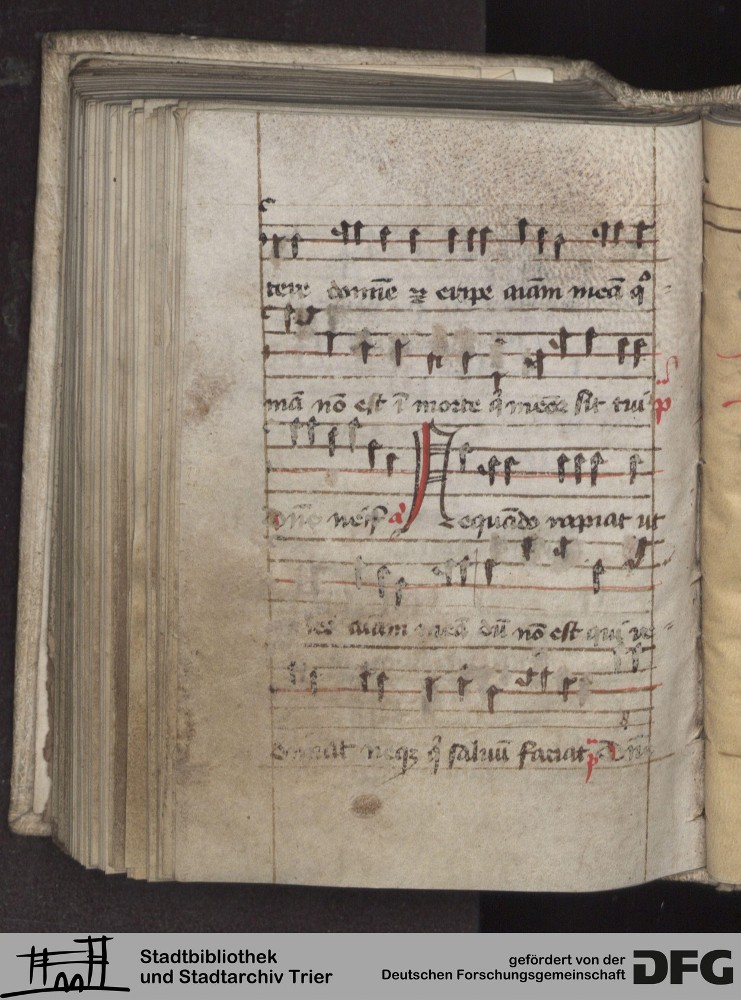 tere domīe ⁊ eripe aīam meā qͦ
niā nō est ī morte qͥ memor sit tui p
equādo rapiat ut
aīam meā dū nō est qui re
dimat neqꝫ qͥ saluū faciat p̄
Stadtbibliothek
und Stadtarchiv Trier
gefördert von der
Deutschen Forschungsgemeinschaft
DFG